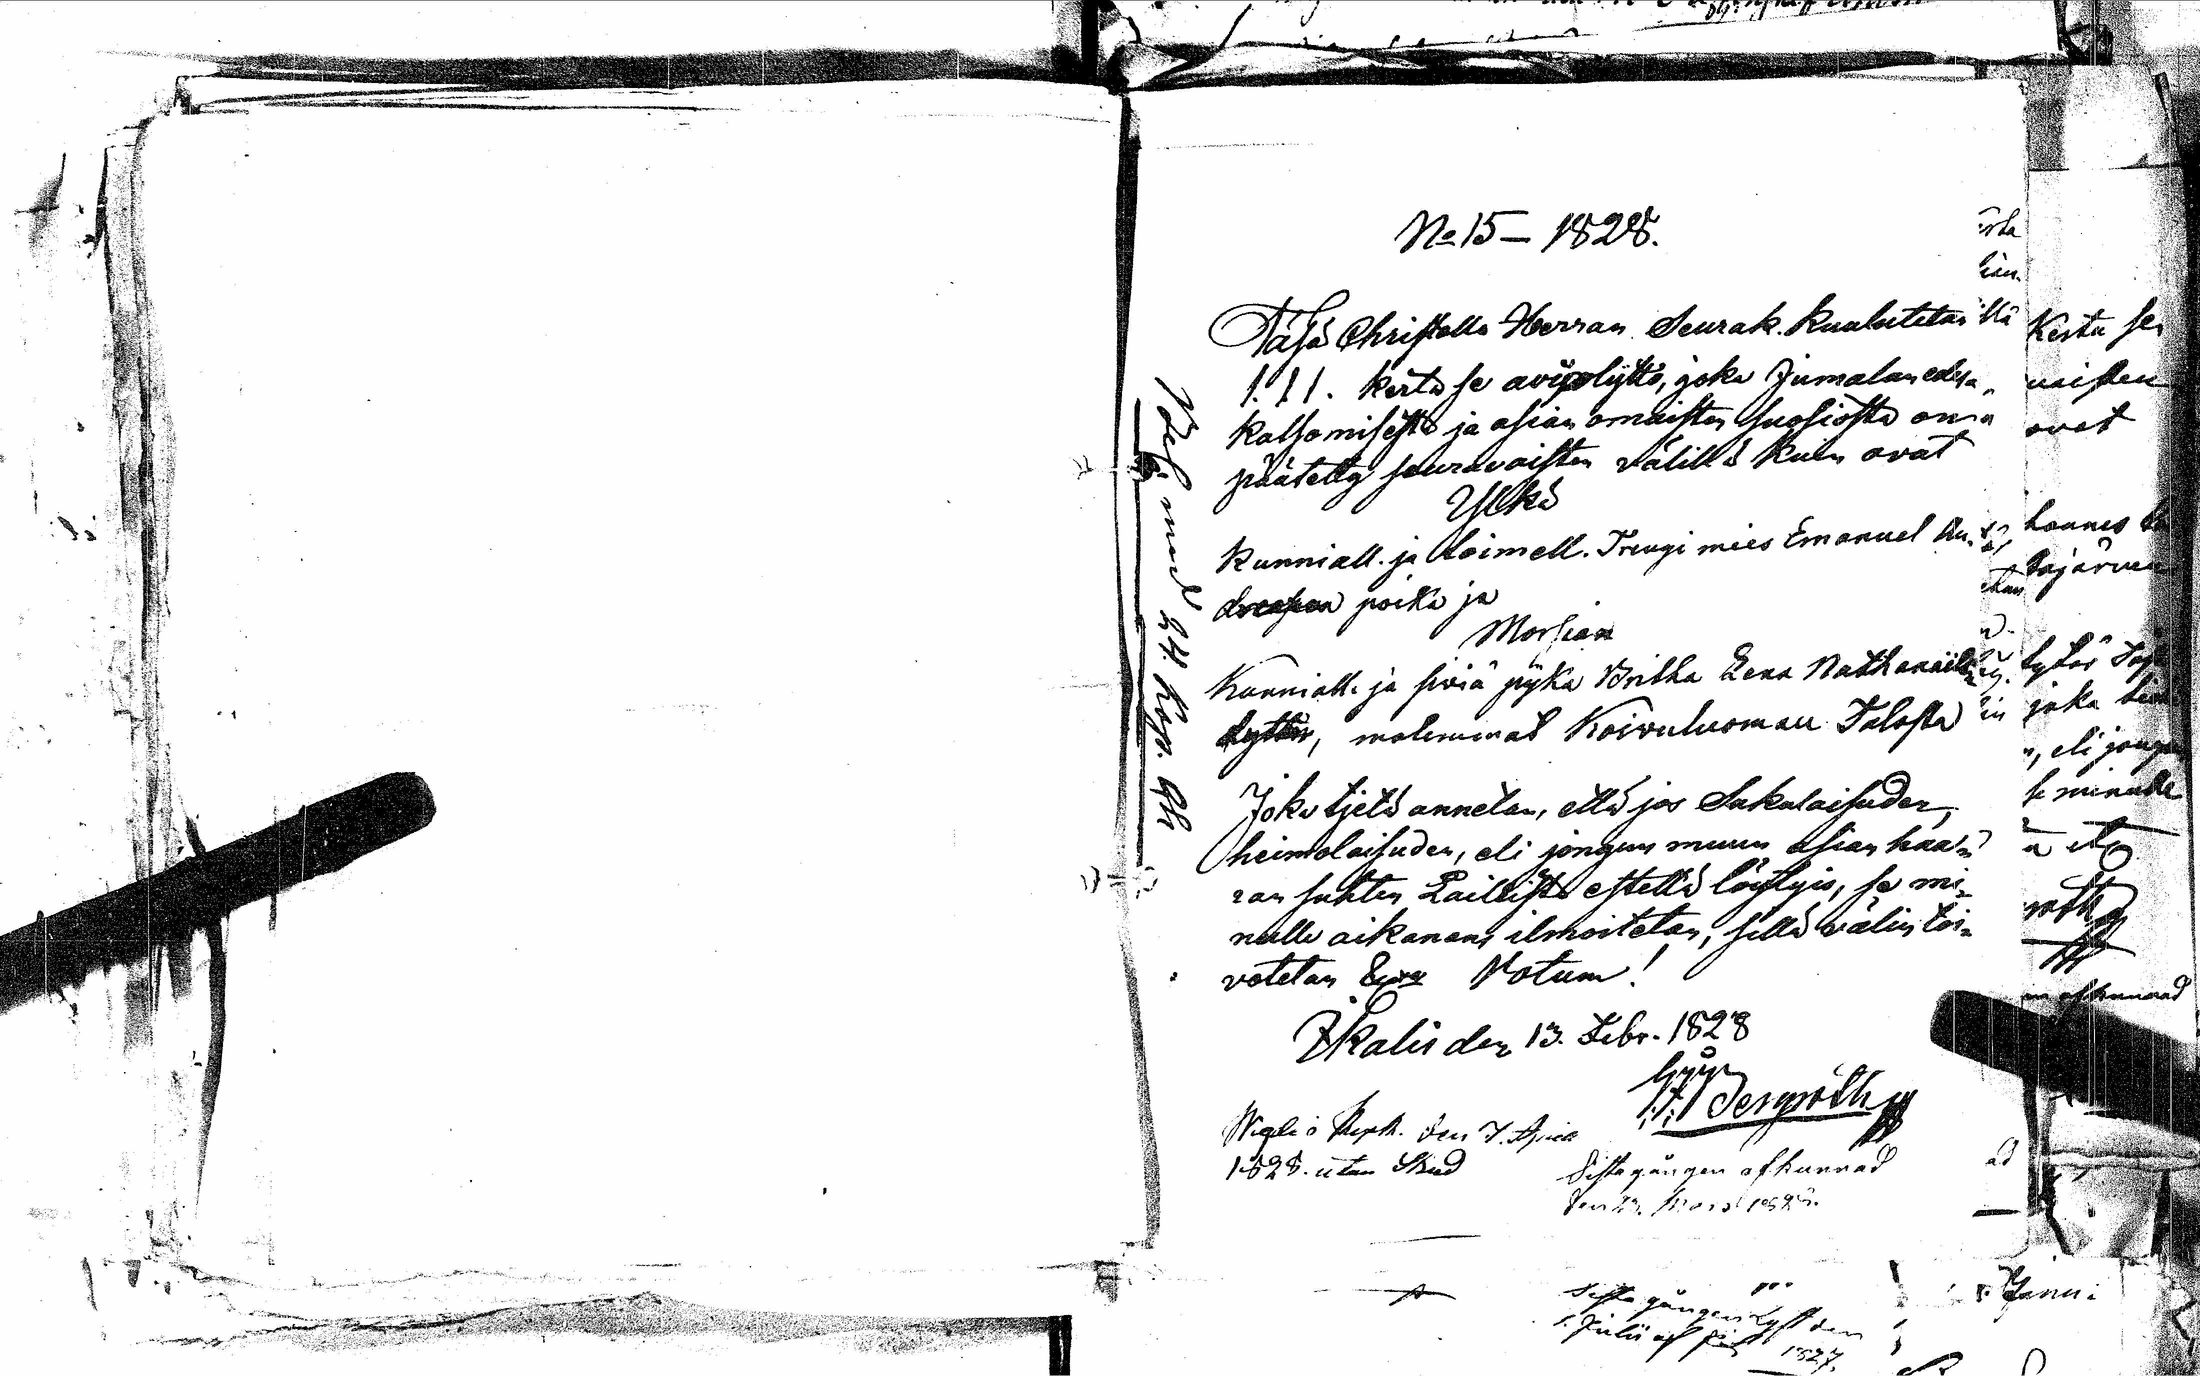 No 15 — 1828.
Täsä Christella Herran Seurak. kuulutetan
1. 1 1. kerta se avijolijtto, joka Jumalan edesä
katsomisesta ja asian omaisten suosiosta on
päätetty seuravaisten välillä kuin ovat
Ylkä
Kunniall. ja toimell. Trengi mies Emanuel An-
dreaxen poika ja
Morsian
Kunniall. ja siviä pijka Britha Lena Nathanaelin
tytär, molemmat Koivuluoman Talosta
Joka tjetä annetan, että jos Sukulaisuden,
heimolaisuden, eli jongun muun asian haa-
ran suhten Laillista estettä löytyis, se mi-
nulle aikanans ilmoitetan, sillä välin toi-
votetan Votum!
Ikalis den 13. Febr. 1828
Bergroth
Wigde i Kyrk. den 7. April
1828. utan Skud
Sista gången afkunnad
den Mars 1828.
24. Kop.
Sista gången Lyst den
Julii 1827.
Kerta se
vaisten
ovat
hannes
tajärven
tytär
joka
, eli jongun
se minulle
afkunnad
Junii